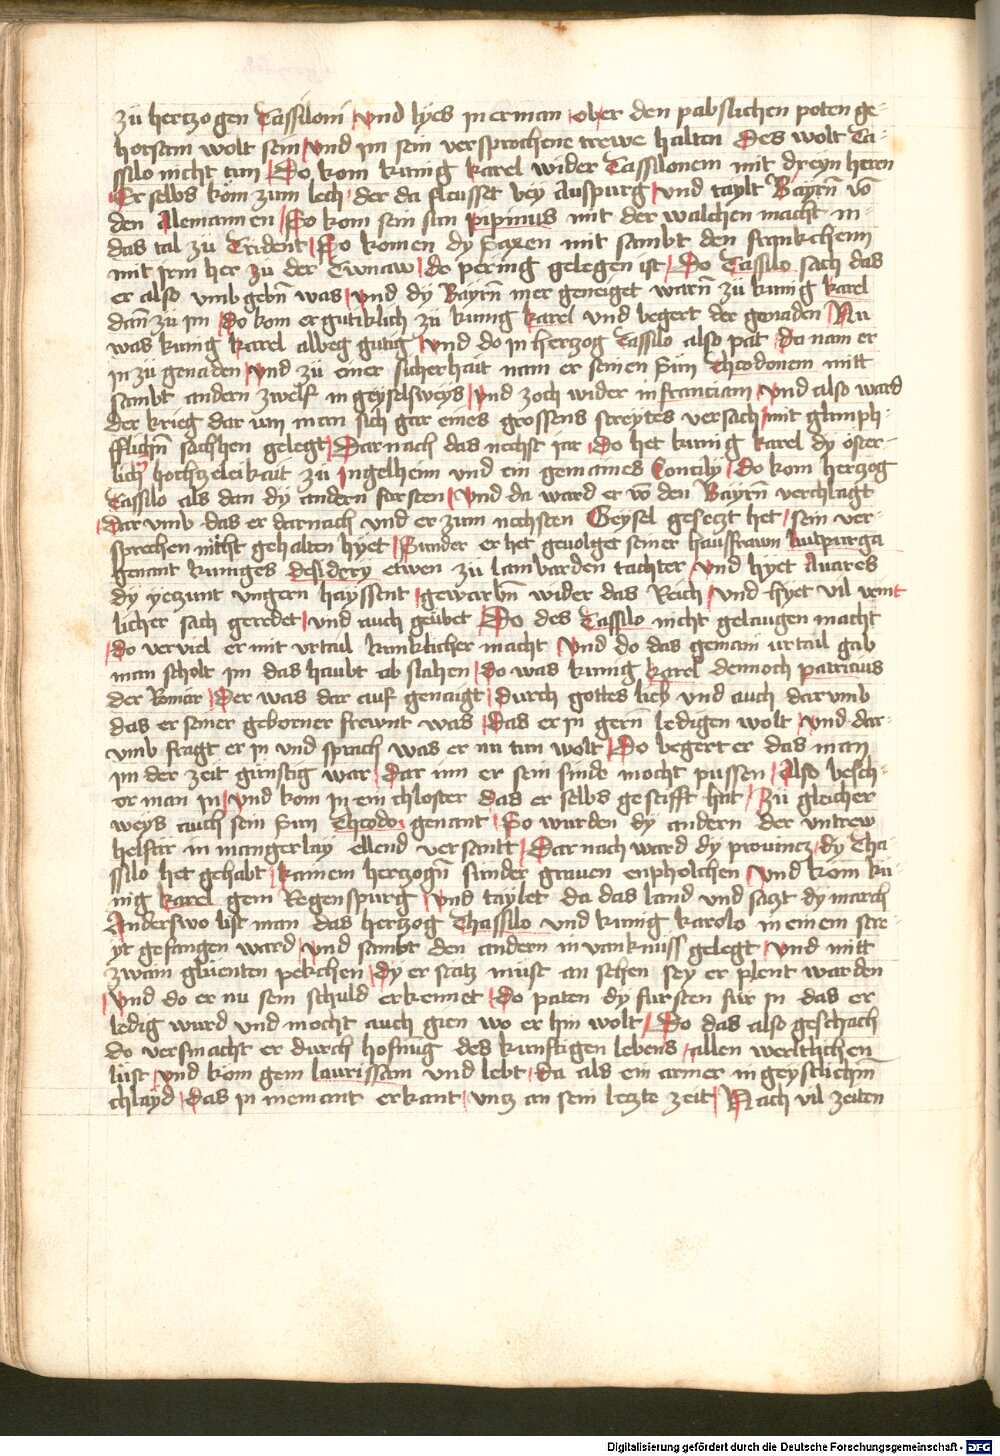 zů hertzogen Tassiloni / vnd lyes in erman / ob er den pabslichen poten ge-
horsam wolt sein / vnd im sein versprochene trewe halten Des wolt Ta-
ssilo nicht tun / Do kom kunig karel wider Tassilonem mit dreyn heren
Er selbs kom zum lech / der da fleusset bey Auspurg / vnd taylt Bayrn̄ vō
den Alemannen / So kom sein sun pipinus mit der walchen macht in
das tal zu Trident / So komen dy Saxen mit sambt den franckchenn
mit irm her zu der Tunaw / do pering gelegen ist / Do Tassilo sach das
er also vmb gebn̄ was / vnd dy Bayrn̄ mer geneiget warn̄ zů kunig karel
dan̄ zů im / do kom er gutiklich zů kunig karel vnd begert der genaden / Nu
was kunig karel alweg gutig / vnd do in hertzog Tassilo also pat / do nam er
in zu genaden / vnd zu einer sicherhait nam er seinen Sun Theodonem mitt
sambt andern zwelf in geyselsweys / vnd zoch wider in franciam / vnd also ward
der krieg dar um man sich gar eines grossens streytes versach / mit glimph-
fflichn̄ sachen gelegt / Darnach das nechst iar / Do het kunig karel dy öster-
lich hochzeleikait zů jngelheim vnd ein gemaines Concily / do kom hertzog
Tassilo als dan dy andern fursten / vnd da ward er vō den Bayrn̄ verchlagt
darvmb das er darnach vnd er zum nechsten Geysel gesetzt het / sein ver-
sprechen nicht gehalten hyet / Sunder er het geuolget seiner hausfrawn lutpurga
genant kuniges desidery etwen zu lamparden tachter / vnd hyet Auares
dy yetzunt vngern hayssent / gewarbn̄ wider das Reich / vnd hyet vil
licher sach geredet / vnd auch geübet / Do des Tassilo nicht gelaugen macht
do verviel er mit vrtail kunklicher macht / vnd do das gemain vrtail gab
man scholt im das haubt ab slahen / do was kunig karel dennoch patricius
der Romär / Der was dar auf genaigt / durch gottes lieb vnd auch darvmb
das er seiner geborner frewnt was / das er in gern̄ ledigen wolt / vnd dar-
vmb fragt er in vnd sprach was er nu tun wolt / Do begert er das man
im der zeit gunstig war / dar inn er sein sunde mocht pussen / Also besch-
or man in / vnd kom in ein chloster das er selbs gestifft hat / Zů gleicher
weys auch sein Sun Theodo genant / So wurden dy andern der vntrew
helffar in mangerlay ellend versantt / Dar nach ward dy provintz / dy Tha-
ssilo het gehabt / kainem hertzogn̄ sunder grauen enpholchen / vnd kom kü-
nig karel gein Regenspurg / vnd taylet da das land vnd satzt dy march
Anderswo list man das hertzog Thassilo vnd kunig karolo in einem stre-
yt gefangen ward / vnd sambt den andern in vanknuss gelegt / vnd mitt
zwain glüenten pekchen / dy er stätz müst an sehen sey er plent warden
vnd do er nu sein schuld erkennet / do paten dy fursten für in das er
ledig wurd vnd mocht auch gien wo er hin wolt / Do das also geschach
do versmacht er durch hofnūg des kunftigen lebens / allen werltlichen
lüst / vnd kom gem laurissam vnd lebt / da als ein armer in geystlichm̄
chlayd / das in niemant erkant / vntz an sein letzte zeit / Nach vil zeiten
Digitalisierung gefördert durch die Deutsche Forschungsgemeinschaft - DFG